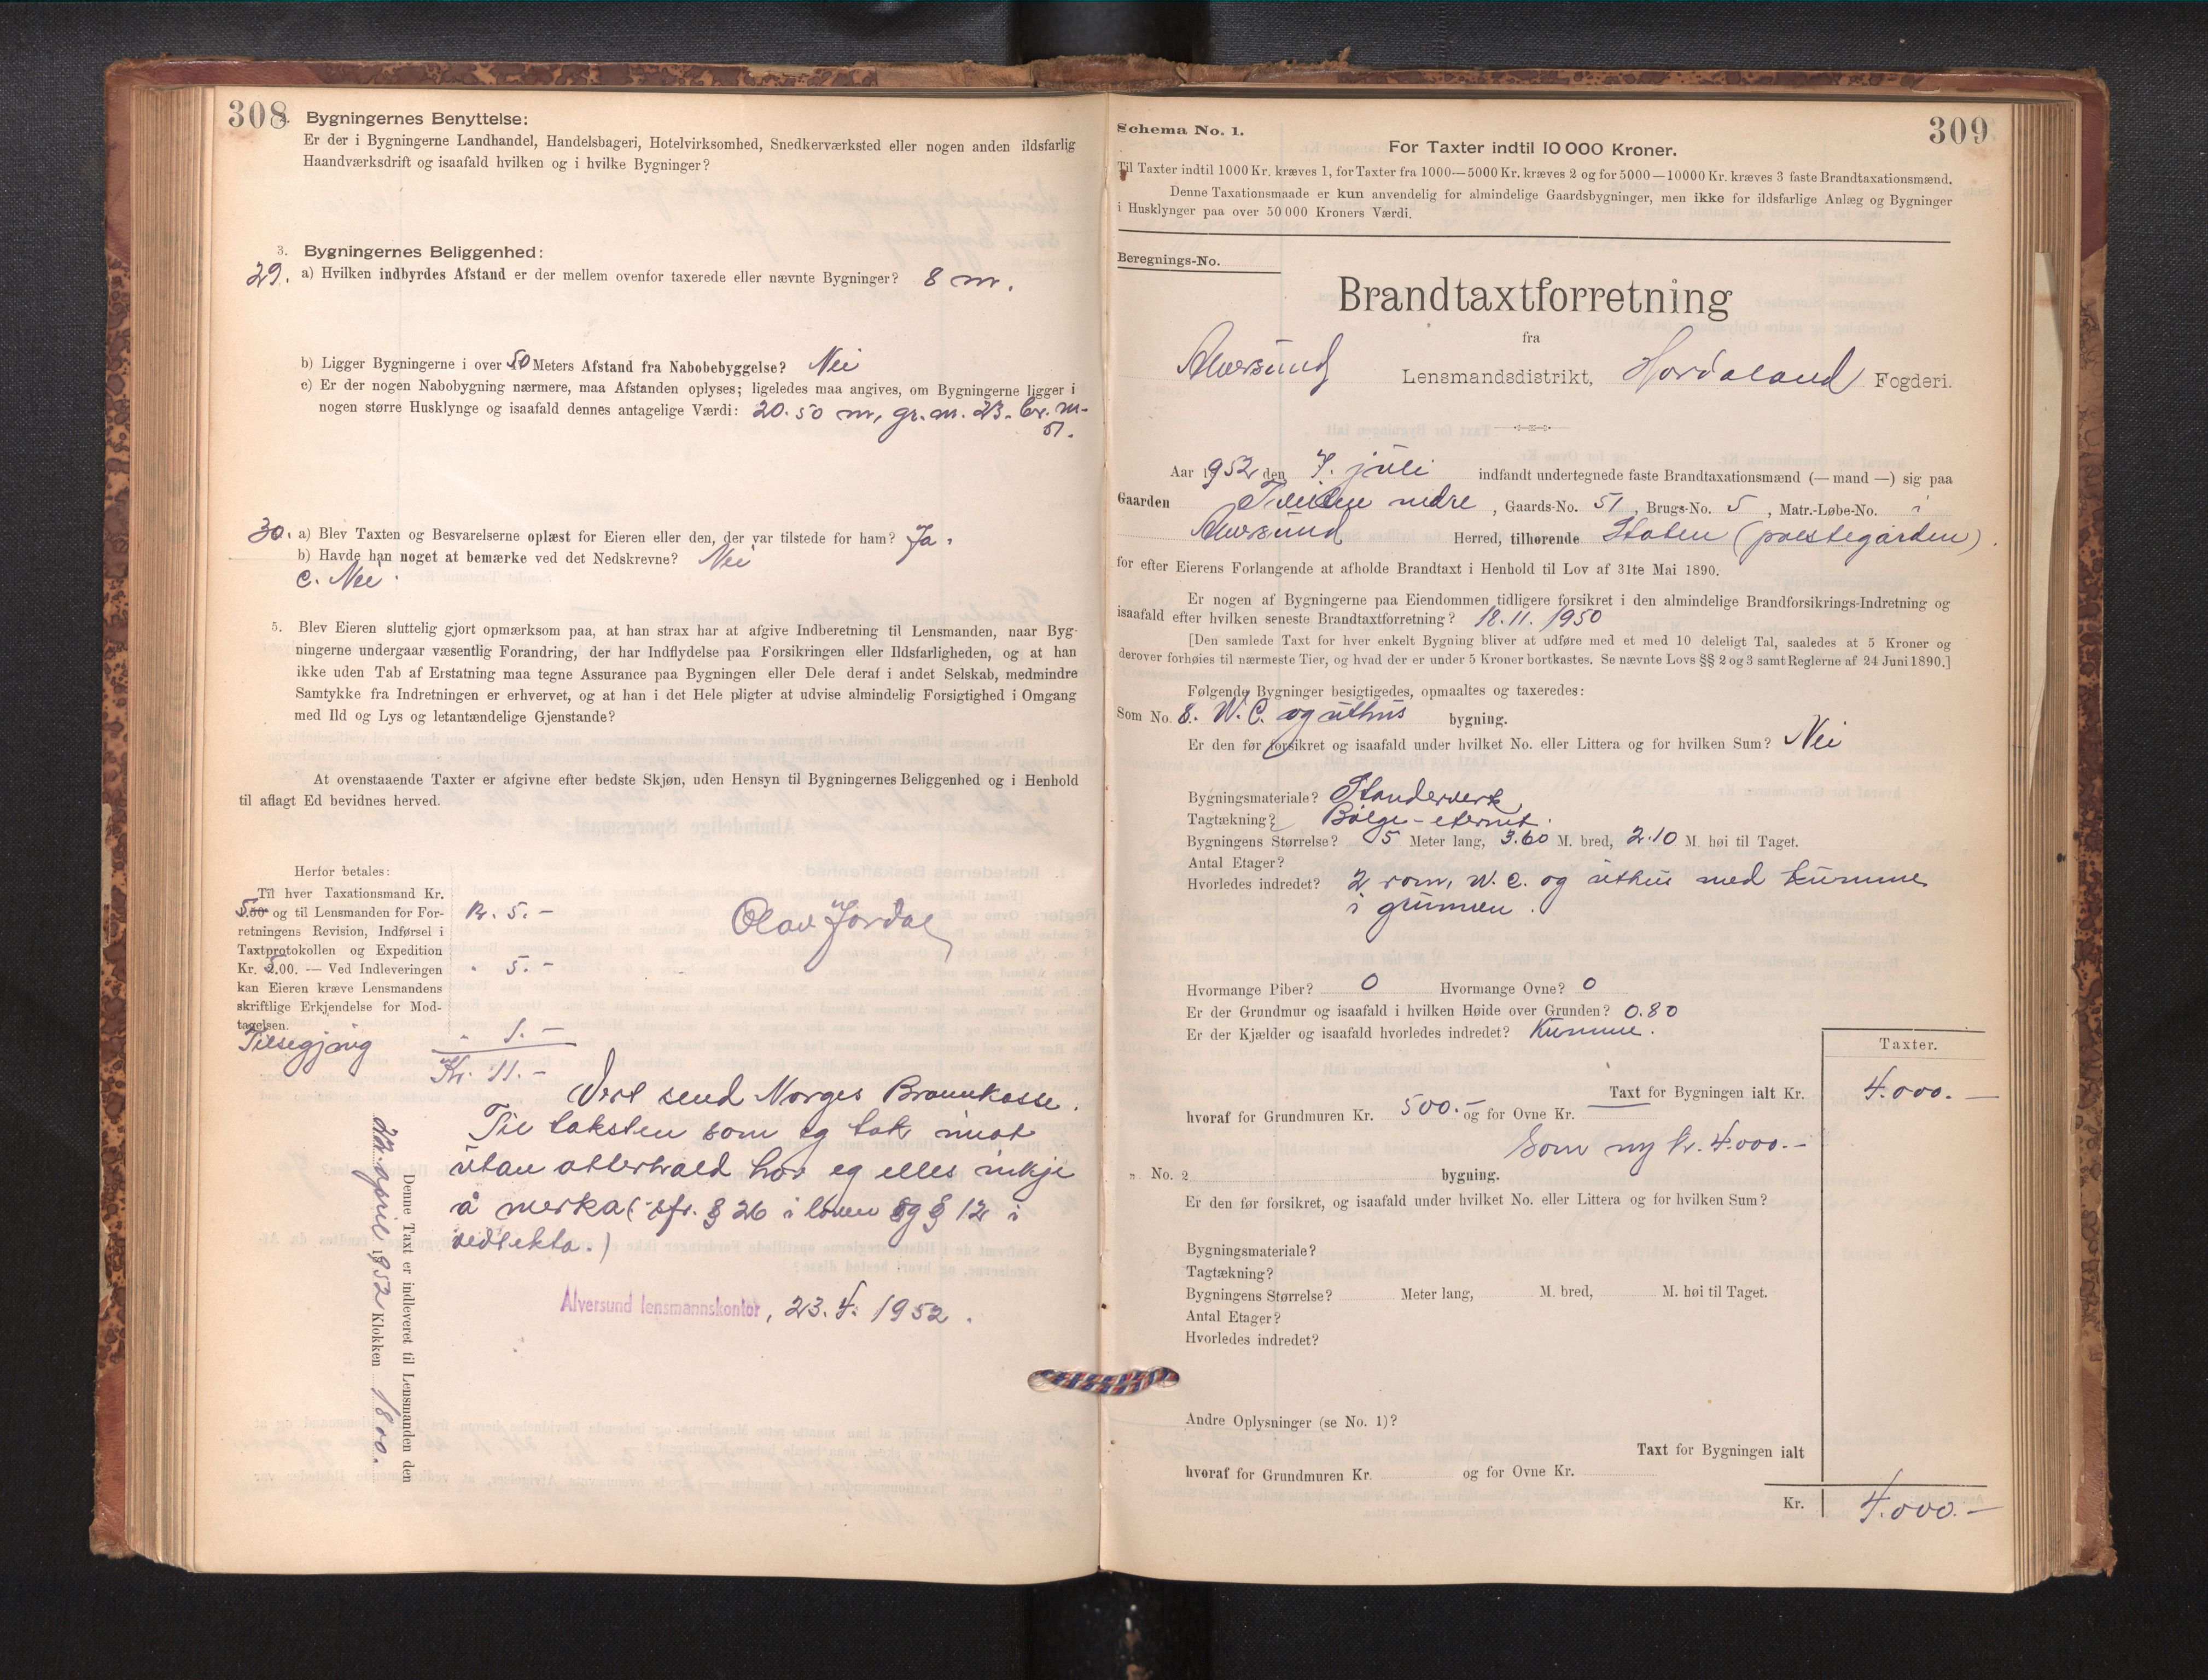 308
2. Bygningernes Benyttelse:
Er der i Bygningerne Landhandel, Handelsbageri, Hotelvirksomhed, Snedkerværksted eller nogen anden ildsfarlig
Haandværksdrift og isaafald hvilken og i hvilke Bygninger?
3. Bygningernes Beliggenhed:
29. a) Hvilken indbyrdes Afstand er der mellem ovenfor taxerede eller nævnte Bygninger? 8 m.
b) Ligger Bygningerne i over 50 Meters Afstand fra Nabobebyggelse? Nei
c) Er der nogen Nabobygning nærmere, maa Afstanden oplyses; ligeledes maa angives, om Bygningerne ligger i
nogen større Husklynge og isaafald dennes antagelige Værdi: 20.50 m, gr. m. 23. br. m-
51.
30. a) Blev Taxten og Besvarelserne oplæst for Eieren eller den, der var tilstede for ham? Ja.
b) Havde han noget at bemærke ved det Nedskrevne? Nei
c. Nei.
5. Blev Eieren sluttelig gjort opmærksom paa, at han strax har at afgive Indberetning til Lensmanden, naar Byg-
ningerne undergaar væsentlig Forandring, der har Indflydelse paa Forsikringen eller Ildsfarligheden, og at han
ikke uden Tab af Erstatning maa tegne Assurance paa Bygningen eller Dele deraf i andet Selskab, medmindre
Samtykke fra Indretningen er erhvervet, og at han i det Hele pligter at udvise almindelig Forsigtighed i Omgang
med Ild og Lys og letantændelige Gjenstande?
At ovenstaaende Taxter er afgivne efter bedste Skjøn, uden Hensyn til Bygningernes Beliggenhed og i Henhold
til aflagt Ed bevidnes herved.
Herfor betales:
Til hver Taxationsmand Kr.
5.00 og til Lensmanden for For-
retningens Revision, Indførsel i
Taxtprotokollen og Expedition
Kr. 5.00. — Ved Indleveringen
kan Eieren kræve Lensmandens
skriftlige Erkjendelse for Mod-
tagelsen.
Kr. 5.-
" 5.-
Tilsegjing " 1.-
Kr. 11.-
Olav Jordal
Vert send Norges Brannkasse.
Til taksten som eg tok imot
utan atterhald har eg elles inkje
å merka (jfr. § 26 i loven og § 12 i
vedtekta.)
Alversund lensmannskontor, 23.4. 1952.
Denne Taxt er indleveret til Lensmanden den
22. april 1952 Klokken 18 00.
309
Schema No. 1.
For Taxter indtil 10 000 Kroner.
Til Taxter indtil 1000 Kr. kræves 1, for Taxter fra 1000—5000 Kr. kræves 2 og for 5000—10000 Kr. kræves 3 faste Brandtaxationsmænd.
Denne Taxationsmaade er kun anvendelig for almindelige Gaardsbygninger, men ikke for ildsfarlige Anlæg og Bygninger
i Husklynger paa over 50 000 Kroners Værdi.
Beregnings-No.
Brandtaxtforretning
fra
Alversund Lensmandsdistrikt, Hordaland Fogderi.
Aar 1952 den 7. juli indfandt undertegnede faste Brandtaxationsmænd (— mand —) sig paa
Gaarden Tveiten nedre, Gaards-No. 51, Brugs-No. 5, Matr.-Løbe-No. i
Alversund Herred, tilhørende Staten (prestegården).
for efter Eierens Forlangende at afholde Brandtaxt i Henhold til Lov af 31te Mai 1890.
Er nogen af Bygningerne paa Eiendommen tidligere forsikret i den almindelige Brandforsikrings-Indretning og
isaafald efter hvilken seneste Brandtaxtforretning? 18.11.1950
[Den samlede Taxt for hver enkelt Bygning bliver at udføre med et med 10 deleligt Tal, saaledes at 5 Kroner og
derover forhøies til nærmeste Tier, og hvad der er under 5 Kroner bortkastes. Se nævnte Lovs §§ 2 og 3 samt Reglerne af 24 Juni 1890.]
Følgende Bygninger besigtigedes, opmaaltes og taxeredes:
Som No. 8. W.C. og uthus bygning.
Er den før forsikret og isaafald under hvilket No. eller Littera og for hvilken Sum? Nei
Bygningsmateriale? Standerverk
Tagtækning? Bølge-eternit.
Bygningens Størrelse? 5 Meter lang, 3.60 M. bred, 2.10 M. høi til Taget.
Antal Etager?
Hvorledes indredet? 2 rom, W.C. og uthus med kumme
i grunnen.
Hvormange Piber? 0 Hvormange Ovne? 0
Er der Grundmur og isaafald i hvilken Høide over Grunden? 0.80
Er der Kjælder og isaafald hvorledes indredet? Kumme.
Taxter.
Taxt for Bygningen ialt Kr. 4.000.—
hvoraf for Grundmuren Kr. 500.- og for Ovne Kr.
Som ny kr. 4.000.-
" No. 2 bygning.
Er den før forsikret, og isaafald under hvilket No. eller Littera og for hvilken Sum?
Bygningsmateriale?
Tagtækning?
Bygningens Størrelse? Meter lang, M. bred, M. høi til Taget.
Antal Etager?
Hvorledes indredet?
Andre Oplysninger (se No. 1)?
Taxt for Bygningen ialt
hvoraf for Grundmuren Kr. og for Ovne Kr.
Kr. 4.000.—